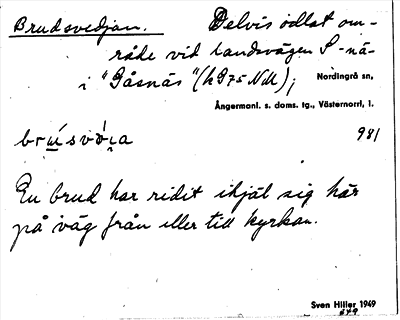 Brudsvedjan. Delvis odlat om-
råde vid landsvägen S-nä-
i "Gåsnäs" (k 975 NM); Nordingrå sn,
Ångermanl. s. doms. tg., Västernorrl. l.
981
En brud har ridit ihjäl sig här
på väg från eller till kyrkan.
Sven Hiller 1949